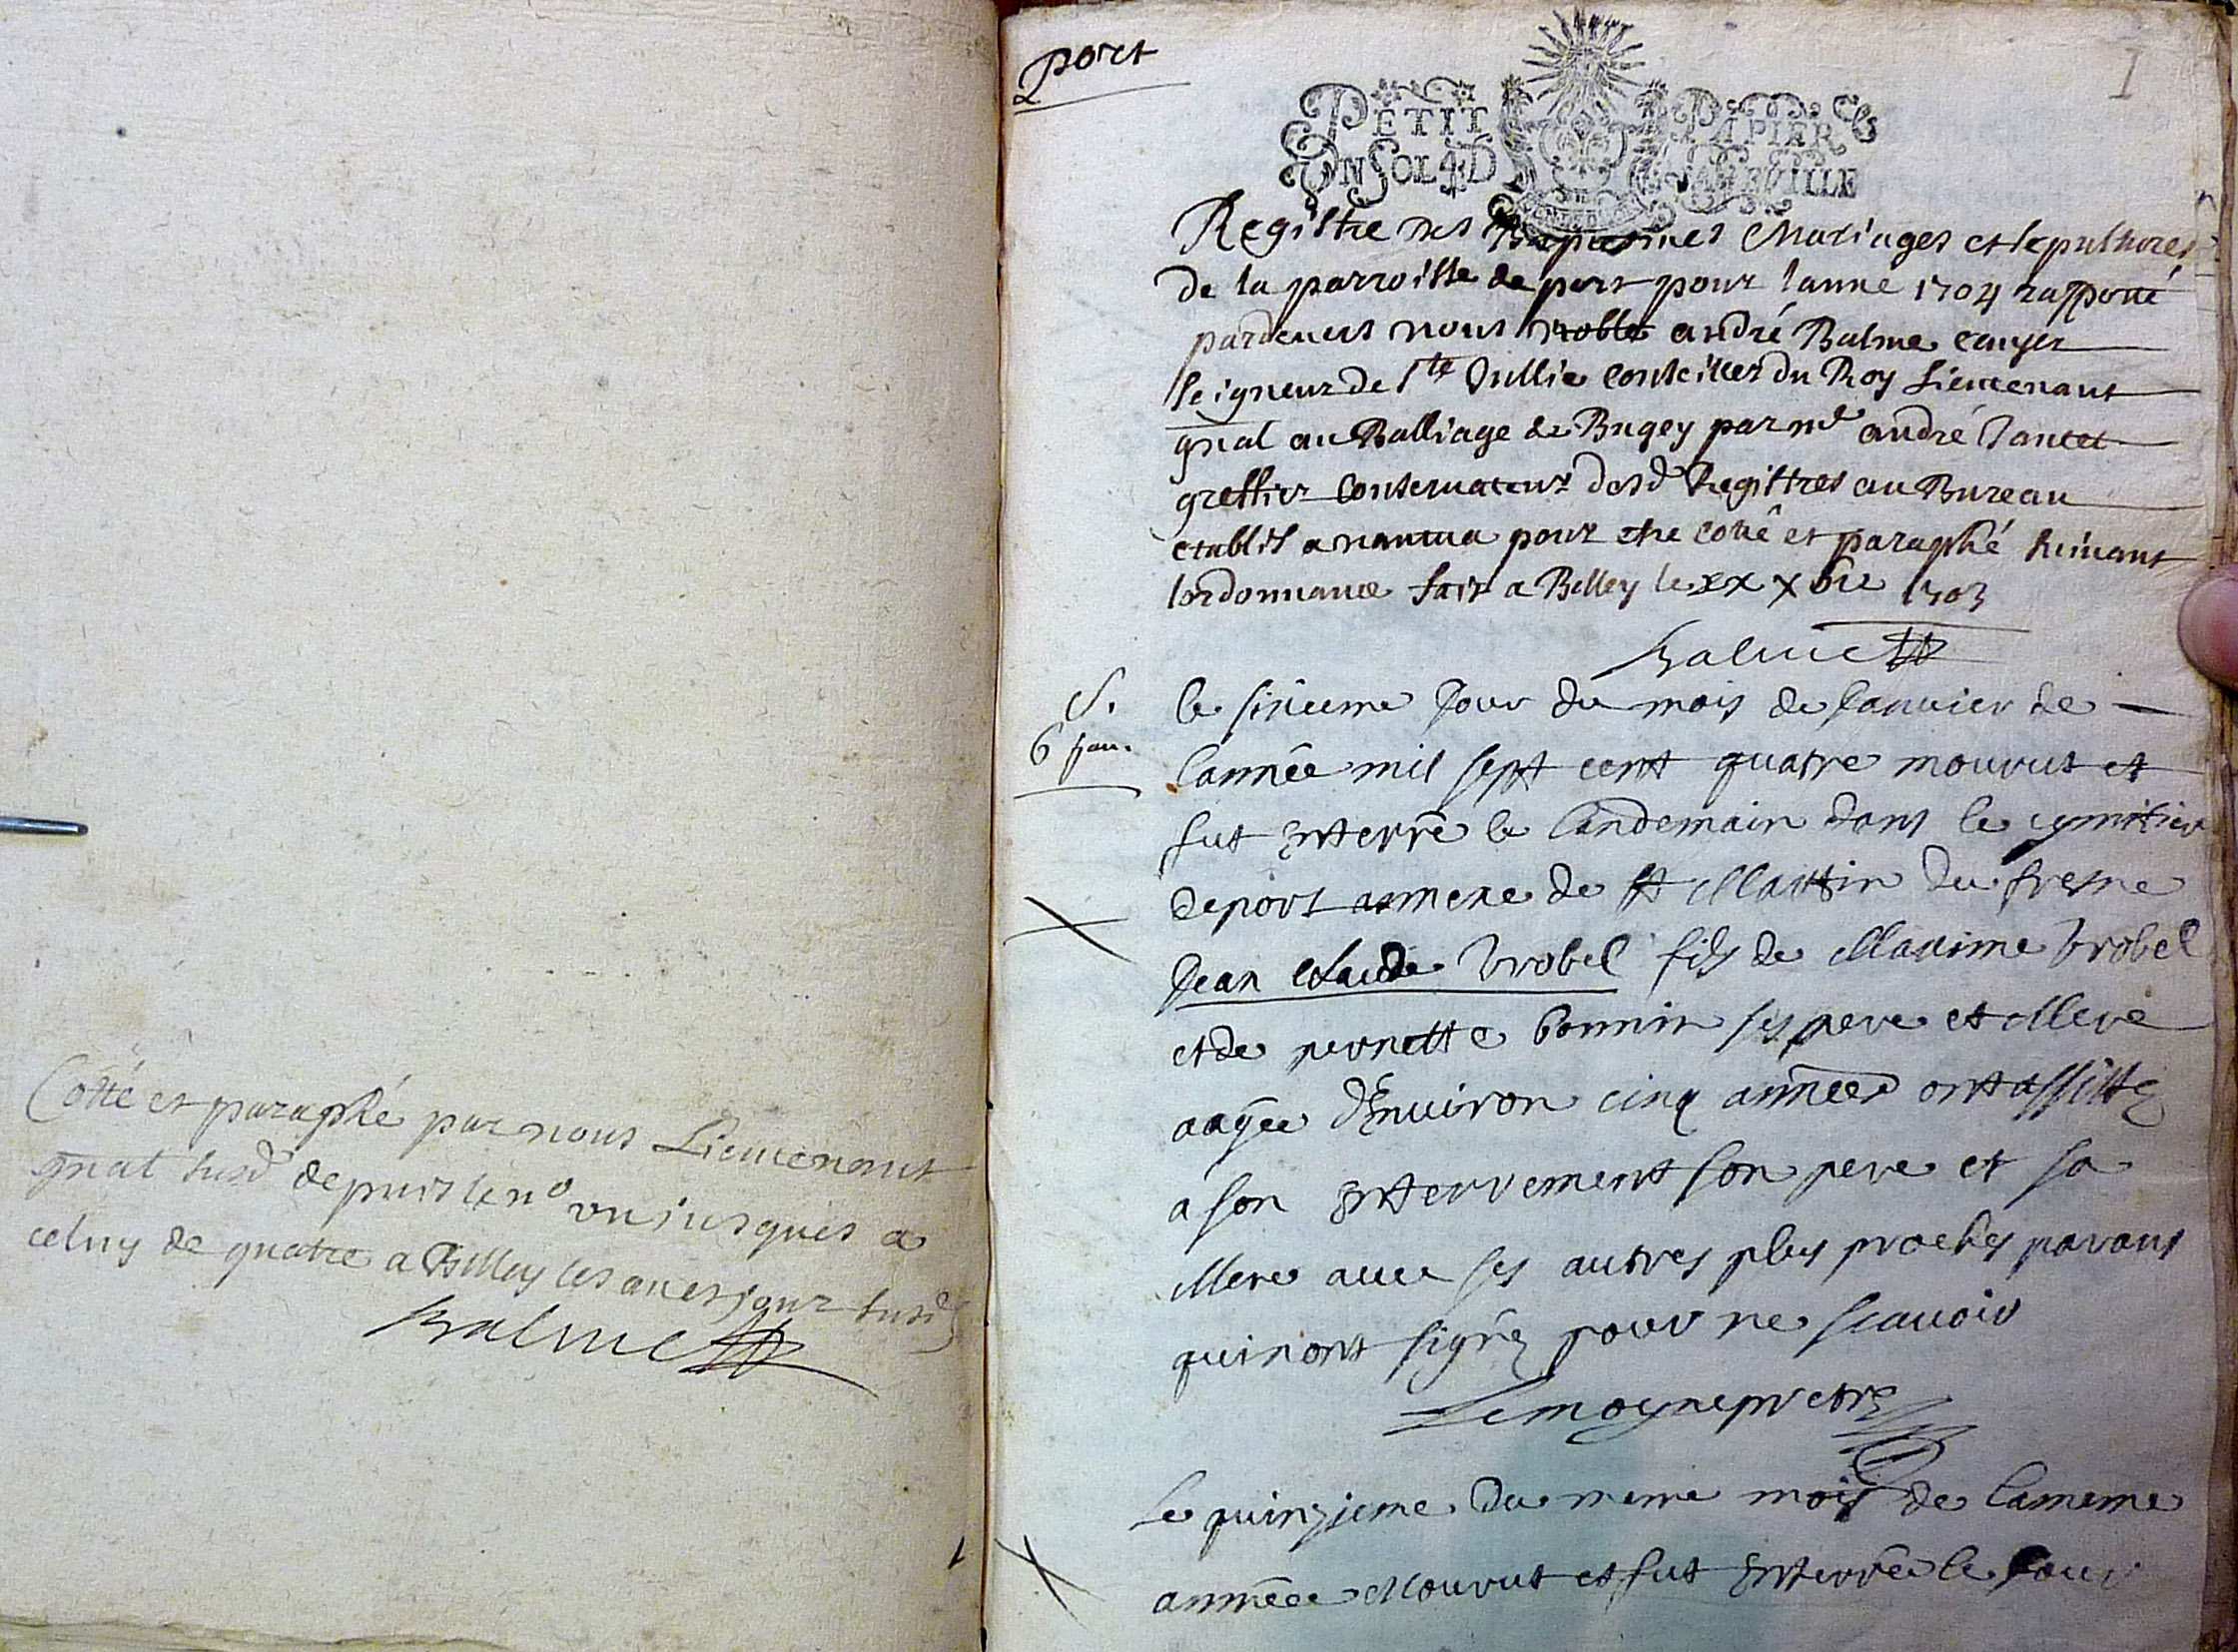 Cotté et paraphé par nous Lieutenant
gnal susd depuis le no un jusques a
celuy de quatre a Belley les an et jour susd
Balme
port
1
PETIT PAPIER
UN SOL 4 D LA FEUILLE
Registre des Baptesmes Mariages et sepultures
de la parroisse de port pour lanné 1704 rapporté
pardevers nous noble andré Balme escuyer
seigneur de ste Jullie conseiller du Roy Lieutenant
gnal au Balliage de Bugey par me andré Jantet
greffier conservateur desd Registres au Bureau
etablis a nantua pour etre cotté et paraphé suivant
lordonnance fait a Belley le xx xbre 1703
Balme
S.
6 jan.
le sixieme Jour du mois de Janvier de
lannée mil sept cent quatre mourut et
fut Enterré le landemain dans le cymitier
de port annexe de st Martin du fresne
Jean claude Brobel fils de Maxime Brobel
et de pernette bonnin ses pere et Mere
aagee d'Environ cinq années ont assisté
a son Enterrement son pere et sa
Mere avec ses autres plus proches parans
qui nont signé pour ne scavoir
Lemoyne pretre
Le quinzieme du meme mois de lameme
année Mourut et fut Enterrée le Jour